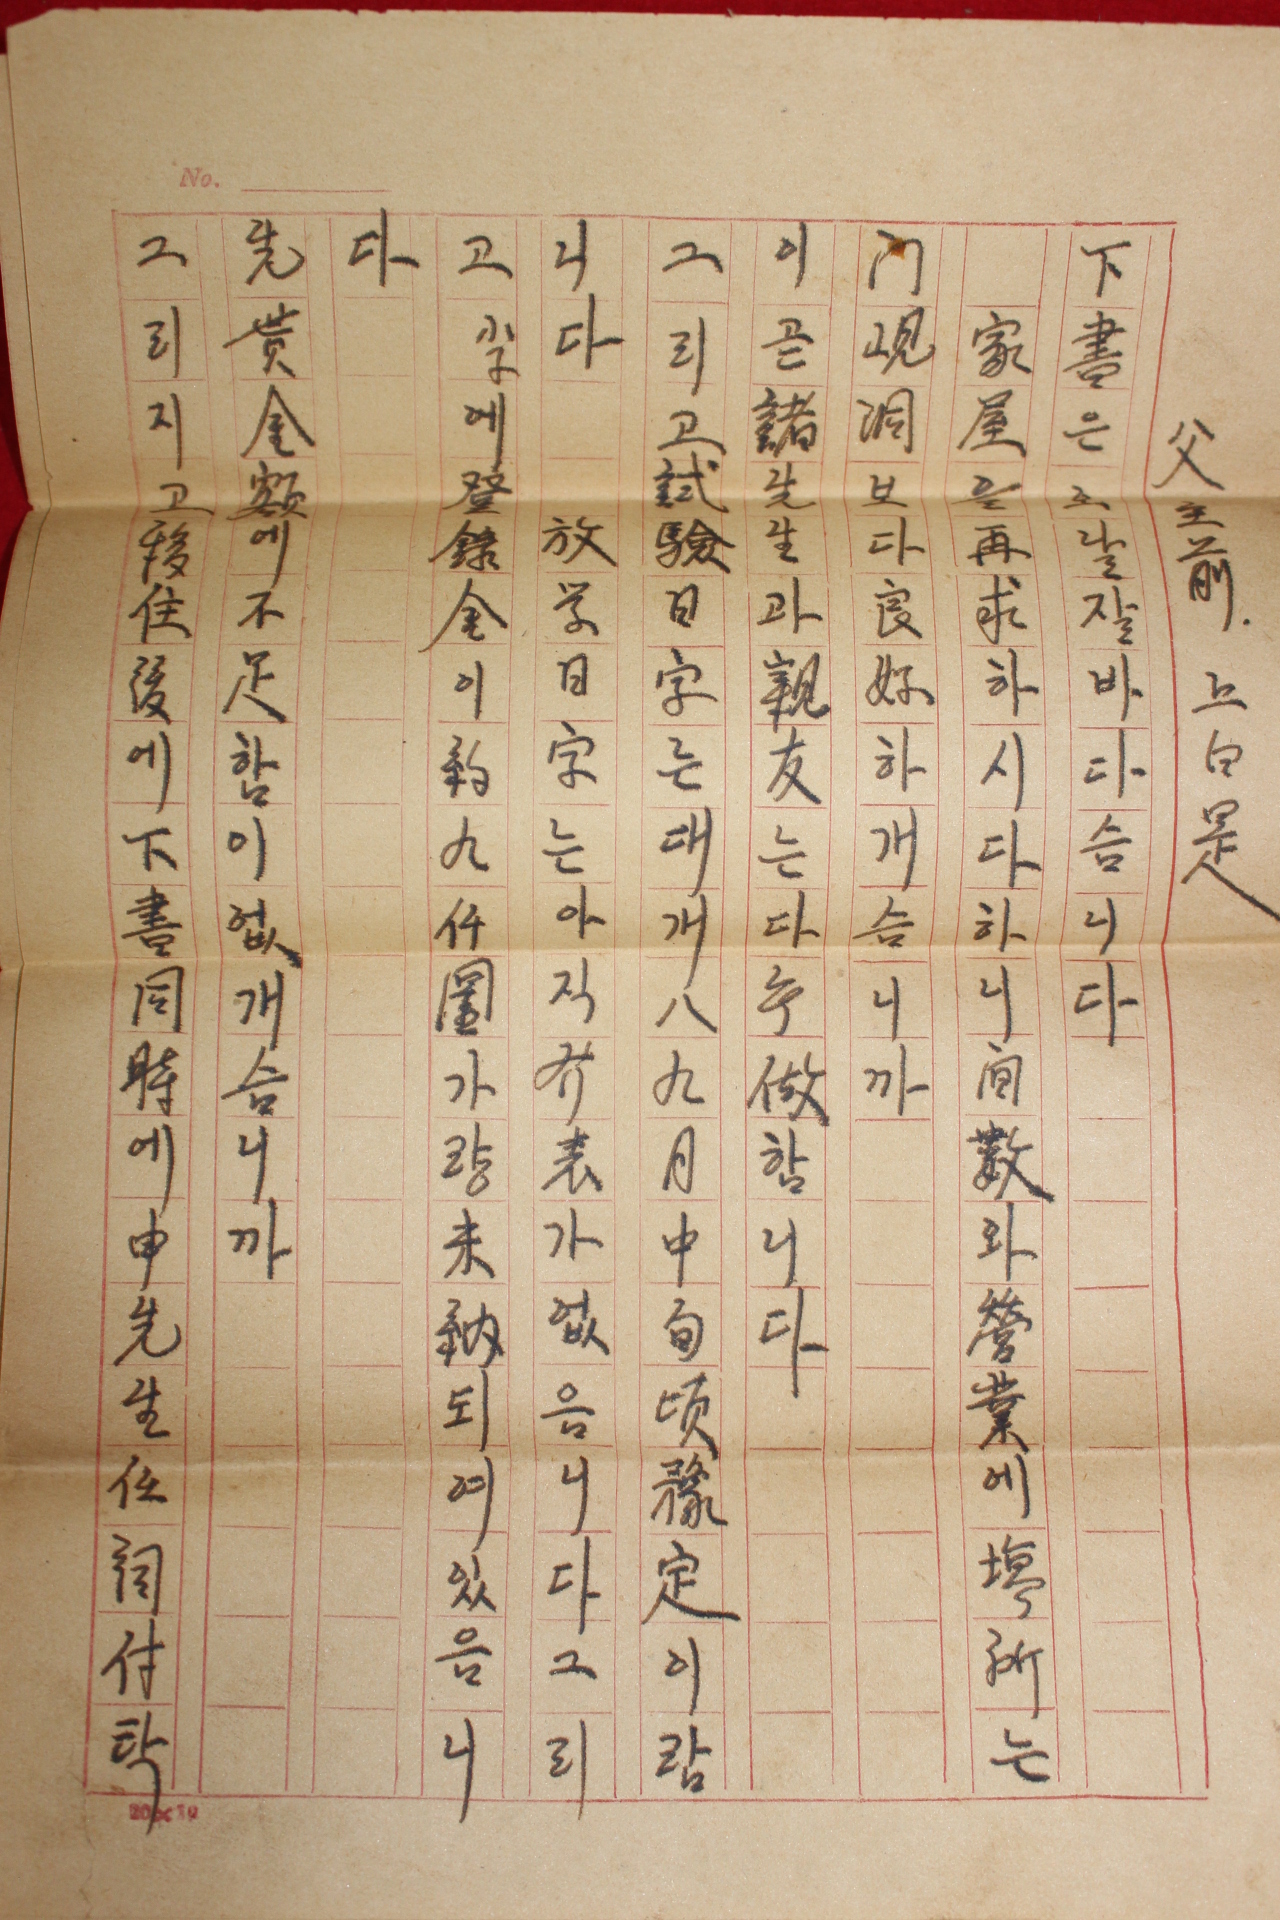 父主前. 上白是
下書은 오날 잘 바다슴니다
家屋을 再求하시다하니 間數와 營業에 場所는
門峴洞보다 良好하개슴니까
이곧 諸先生과 親友는 다 수 做함니다
그리고 試驗日字는 대개 八九月中旬頃 豫定이람
니다 放学日字는 아직 发表가 없음니다 그리
고 学에 登錄金이 約九仟圜가량 未納되여 있음니
다
先貰金額에 不足함이 없개슴니까
그리지고 移住後에 下書同時에 申先生任 付탁
No.
20×10